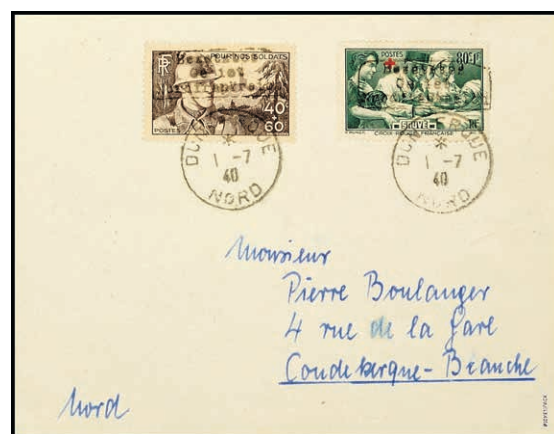 RF POUR NOS SOLDATS
40
+
60
POSTES
POSTES
80c+1F
CROIX ROUGE FRANÇAISE
DUNKERQUE
1 -7
40
NORD
DUNKERQUE
1 -7
40
NORD
Monsieur
Pierre Boulanger
4 rue de la Gare
Coudekerque-Branche
Nord